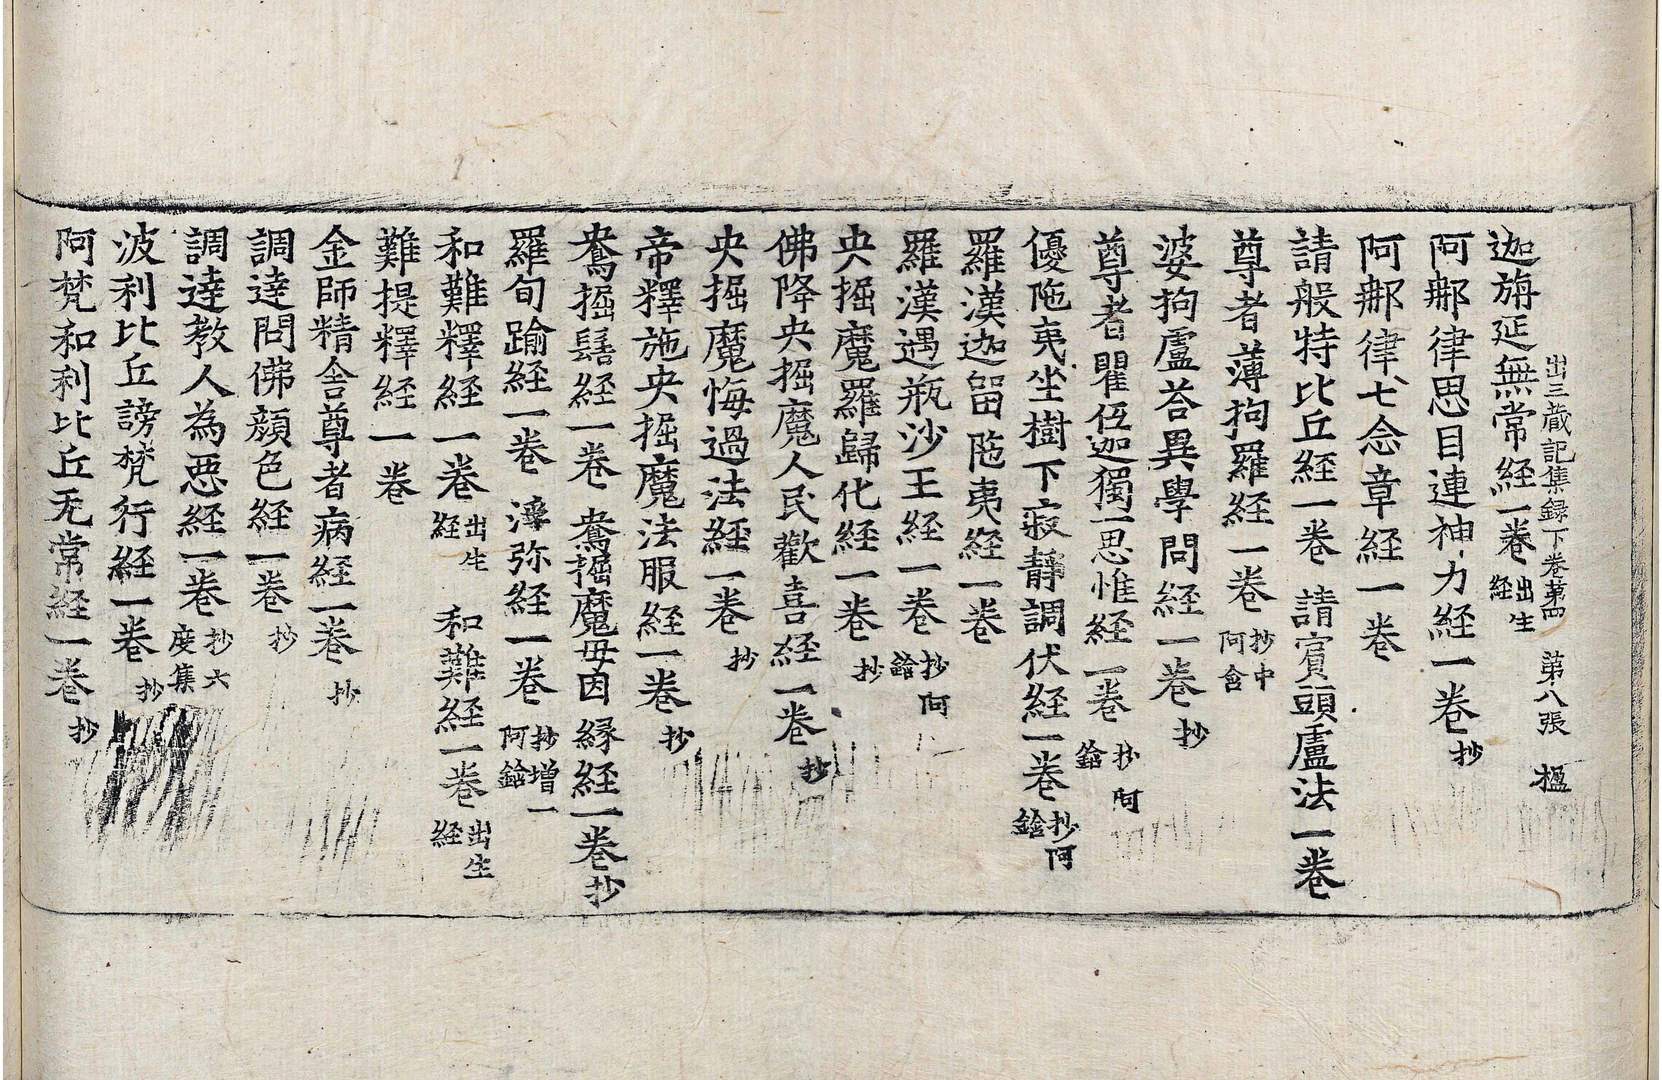 出三蔵記集録下卷第四 第八張 楹
迦旃延無常経一卷出生経
阿𨚗律思目連神力経一卷抄
阿𨚗律七念章経一卷
請般特比丘経一卷 請賓頭盧法一卷
尊者薄拘羅経一卷抄中阿含
婆拘盧荅異學問経一卷抄
尊者瞿伍迦獨一思惟経一卷抄阿鋡
優陁夷坐樹下寂靜調伏経一卷抄阿鋡
羅漢迦留陁夷経一卷
羅漢遇瓶沙王経一卷抄阿鋡
央掘魔羅歸化経一卷抄
佛降央掘魔人民歡喜経一卷抄
央掘魔悔過法経一卷抄
帝釋施央掘魔法服経一卷抄
鴦掘髻経一卷 鴦掘魔母因縁経一卷抄
羅旬踰経一卷 弥経一卷抄増一阿鋡
和難釋経一卷出生経 和難経一卷出生経
難提釋経一卷
金師精舎尊者病経一卷抄
調達問佛顔色経一卷抄
調達教人為惡経一卷抄六度集
波利比丘謗梵行経一卷抄
阿梵和利比丘无常経一卷抄